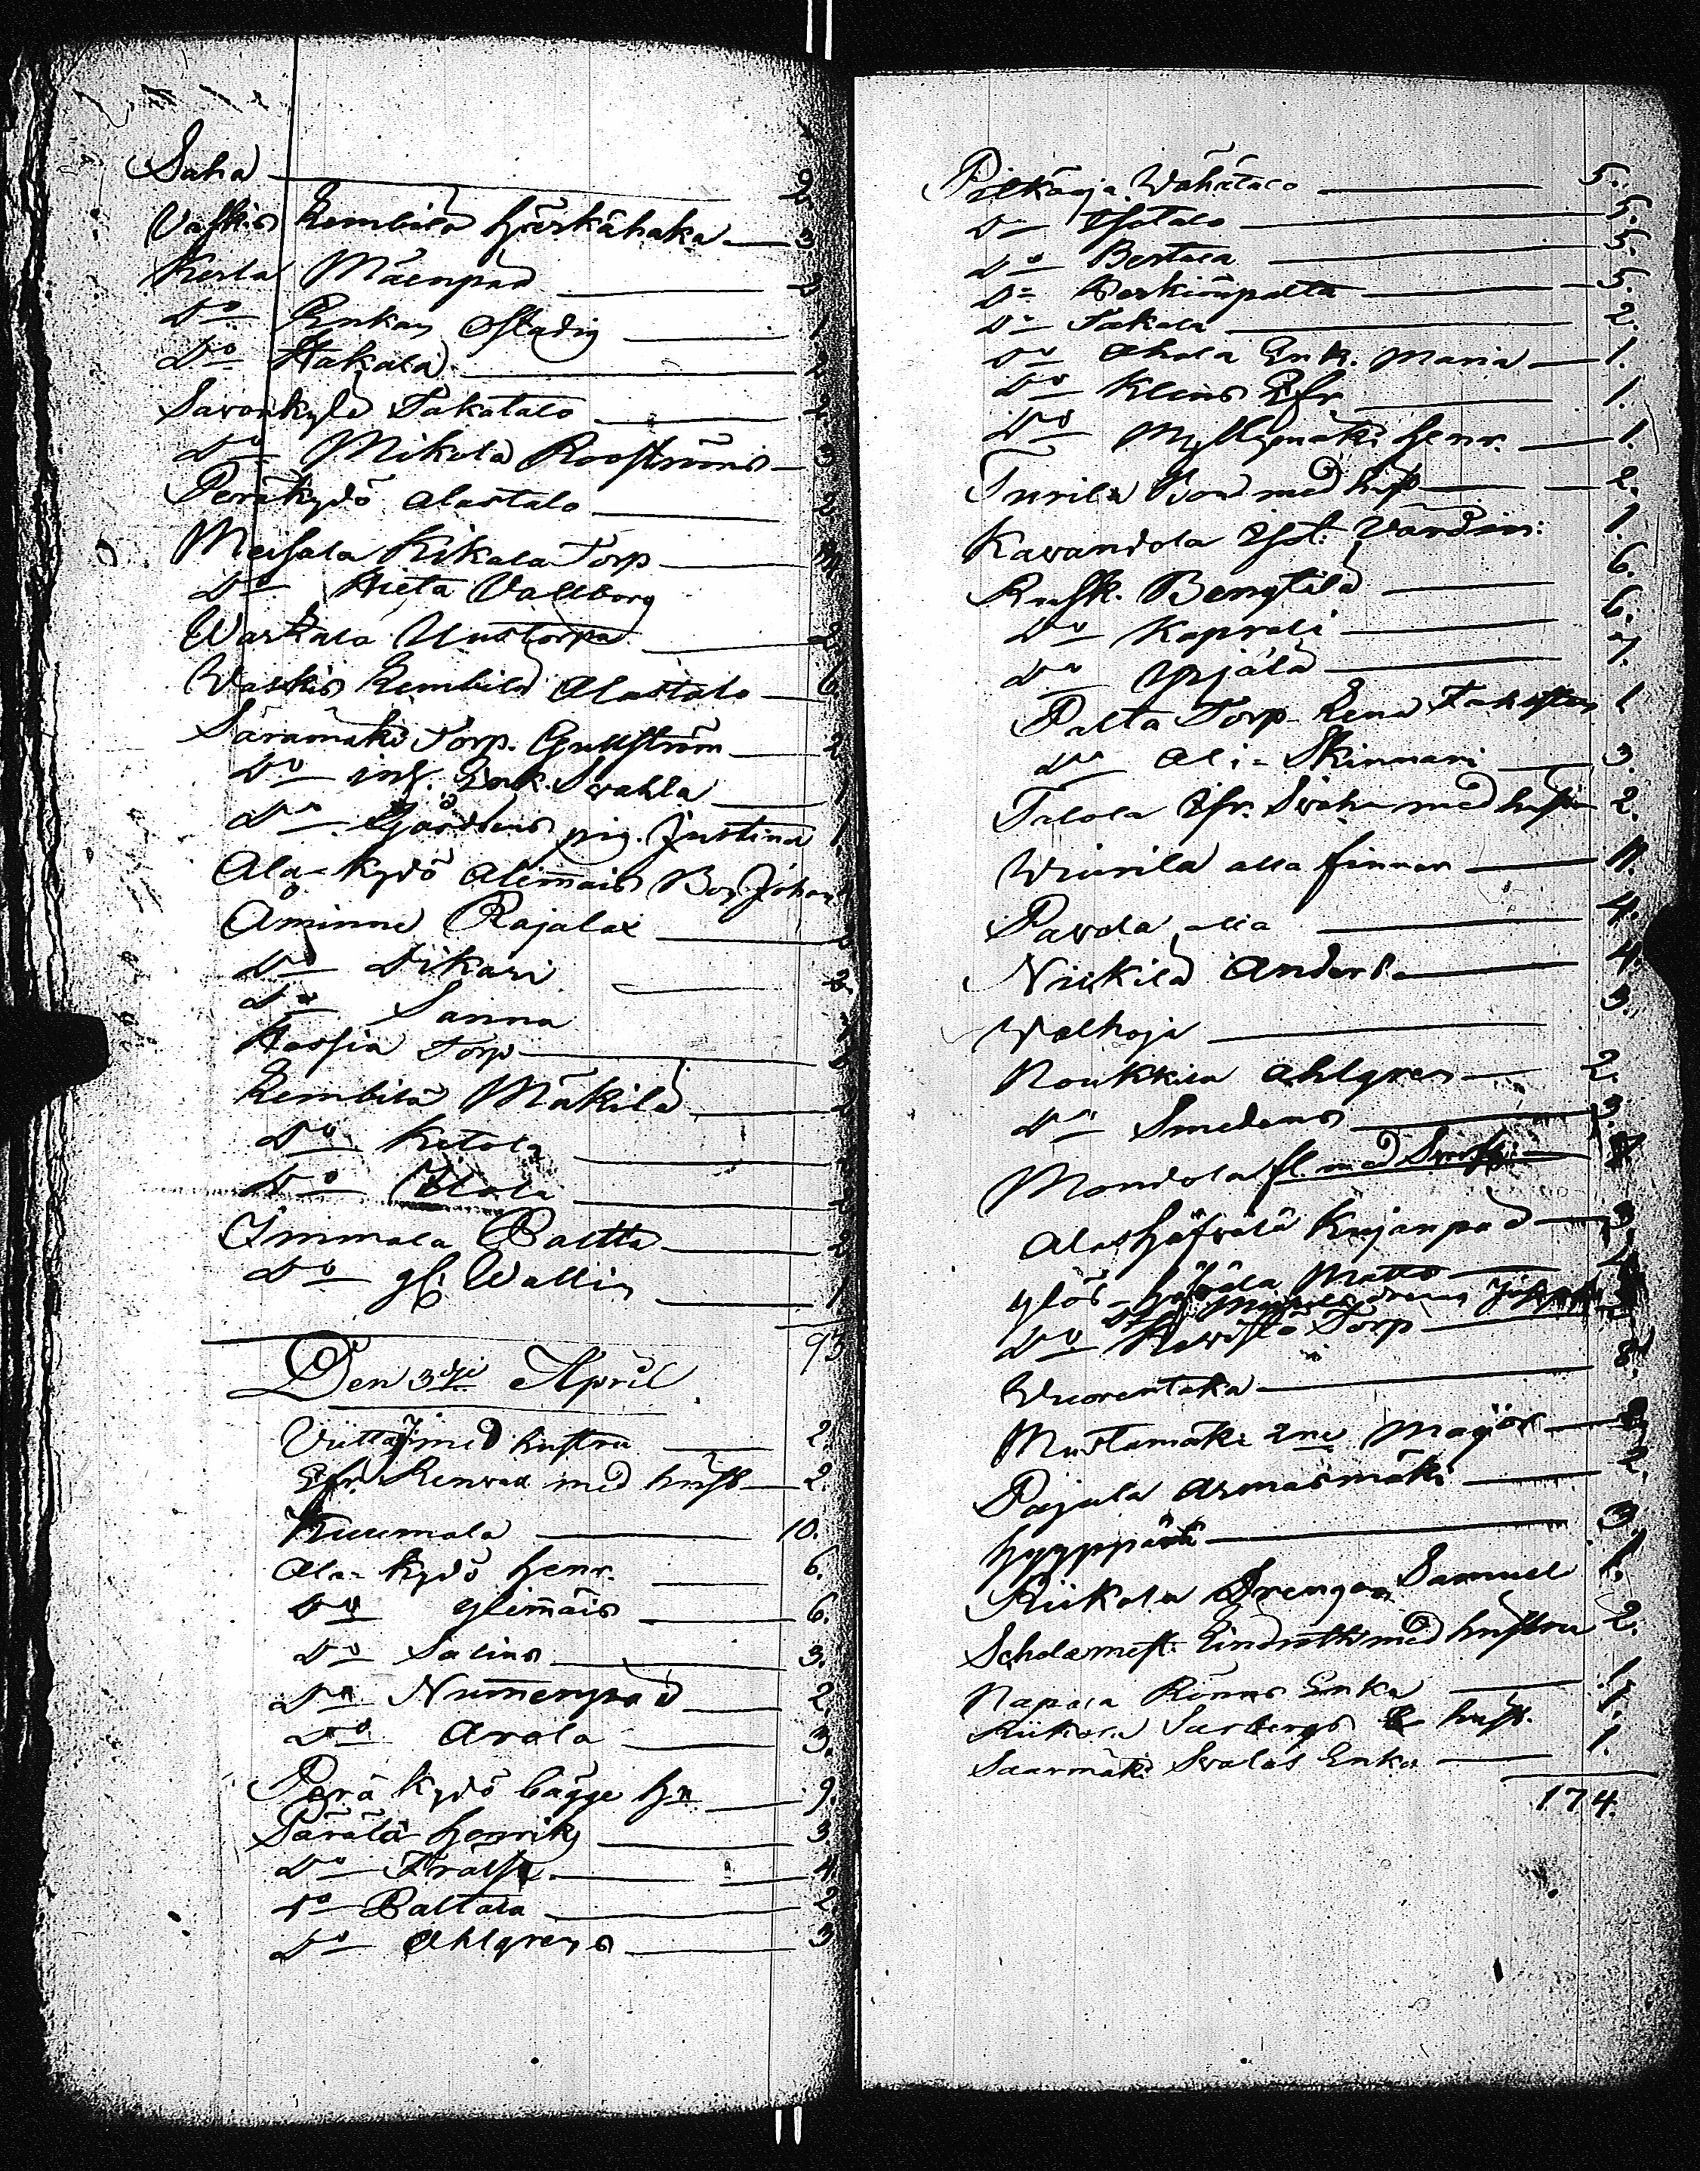 Saha — 2
Vaskio Kembilä Härkähaka — 3
Kerla Mäenpää — 2
Do Enkan Ostadig — 1
Do Hakala — 2
Savonkylä Takatalo — 2
Do Mikola Rooströms — 3
Peräkydö Alastalo — 2
Meisala Kikala Torp
Do Hieta Vallborg
Warkala Uustorpa — 2
Waskio Kembilä Alastalo — 6
Säramäki Torp. Gullström — 2
Do inh. Enk. Swahla — 1
Do Gårdens pig. Justina 1
Ala-Kydö Alimais Boj Johan
Åminne Rajala
Do Dikari — 2
Do Sanna 1
Hassia Torp
Kembilä Mäkilä
Do Ketola
Do Ylola
Immala Paltta — 2
Do gl. Wallin — 1
93
Den 3dje April
Viitta med hustru — 2.
Efr. Renvall med hust — 2.
Kuumola — 10.
Ala-Kydö Henr. — 6.
Do Ylimäis — 6.
Do Salins — 3.
Do Nummenpää — 2.
Do Arola — 3.
Perä Kydö bägge Hn — 9.
Pärälä Henriks — 3.
Do Frälse — 4.
Do Paltala — 2.
Do Ahlgrens — 3
Pitkäoja Wähätalo — 5.
Do Isotalo — 5.
Do Bertala — 5.
Do Perkiönpalta — 5.
Do Takala — 2.
Do Ahola Enk. Maria — 1.
Do Klens Efr — 1.
Do Myllymäki Henr. — 1.
Turila Bond med hust — 2.
Kavandola Isot. Värdin: 1.
Rusk. Bengtilä — 6.
Do Kaprali — 6.
Do Yrjälä — 7.
Palta Torp Lena 1
Do Ali-Skinnari — 3.
Talola Efr. Swahn med hustru 2.
Wiurila alla finnar — 11.
Pavola alla — 4.
Niskilä Anders — 4.
Walhoja — 3.
Noukkila Ahlgren — 2.
Do Smedens — 3.
Mondola fl. med
Alashäfvälä Kujanpää — 3
Ylös-häfvälä Matts
Do Kavisto Torp
Wuorentaka — 8.
Mustamäki 2ne Magör
Pajula Armasmäki — 2.
Hyyppärä — 3
Riikola Drengen Samuel 1.
Scholæmest. Lindroth med hustru 2.
Napala Rönns Enka — 1.
Riikola Sarbergs hust. 1.
Saarmäki Svalas Enka — 1.
174.